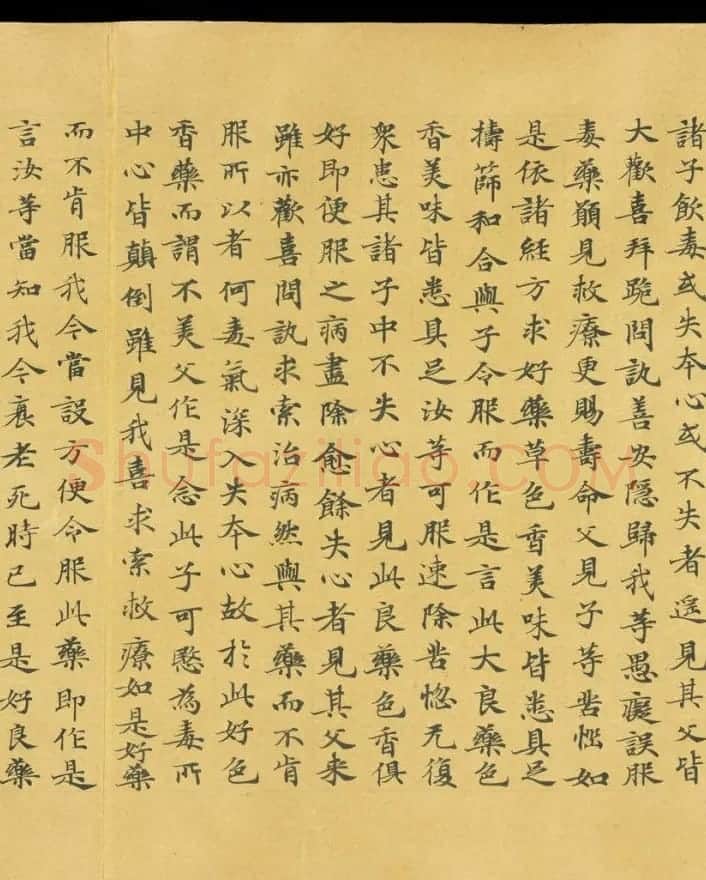 諸子飲毒或失本心或不失者遥見其父皆
大歡喜拜跪問訊善安隱歸我等愚癡誤服
毒藥願見救療更賜壽命父見子等苦惱如
是依諸經方求好藥草色香美味皆悉具足
擣篩和合與子令服而作是言此大良藥色
香美味皆悉具足汝等可服速除苦惱无復
衆患其諸子中不失心者見此良藥色香俱
好即便服之病盡除愈餘失心者見其父来
雖亦歡喜問訊求索治病然與其藥而不肯
服所以者何毒氣深入失本心故於此好色
香藥而謂不美父作是念此子可愍為毒所
中心皆顛倒雖見我喜求索救療如是好藥
而不肯服我今當設方便令服此藥即作是
言汝等當知我今衰老死時已至是好良藥
Shufaziliao.COM